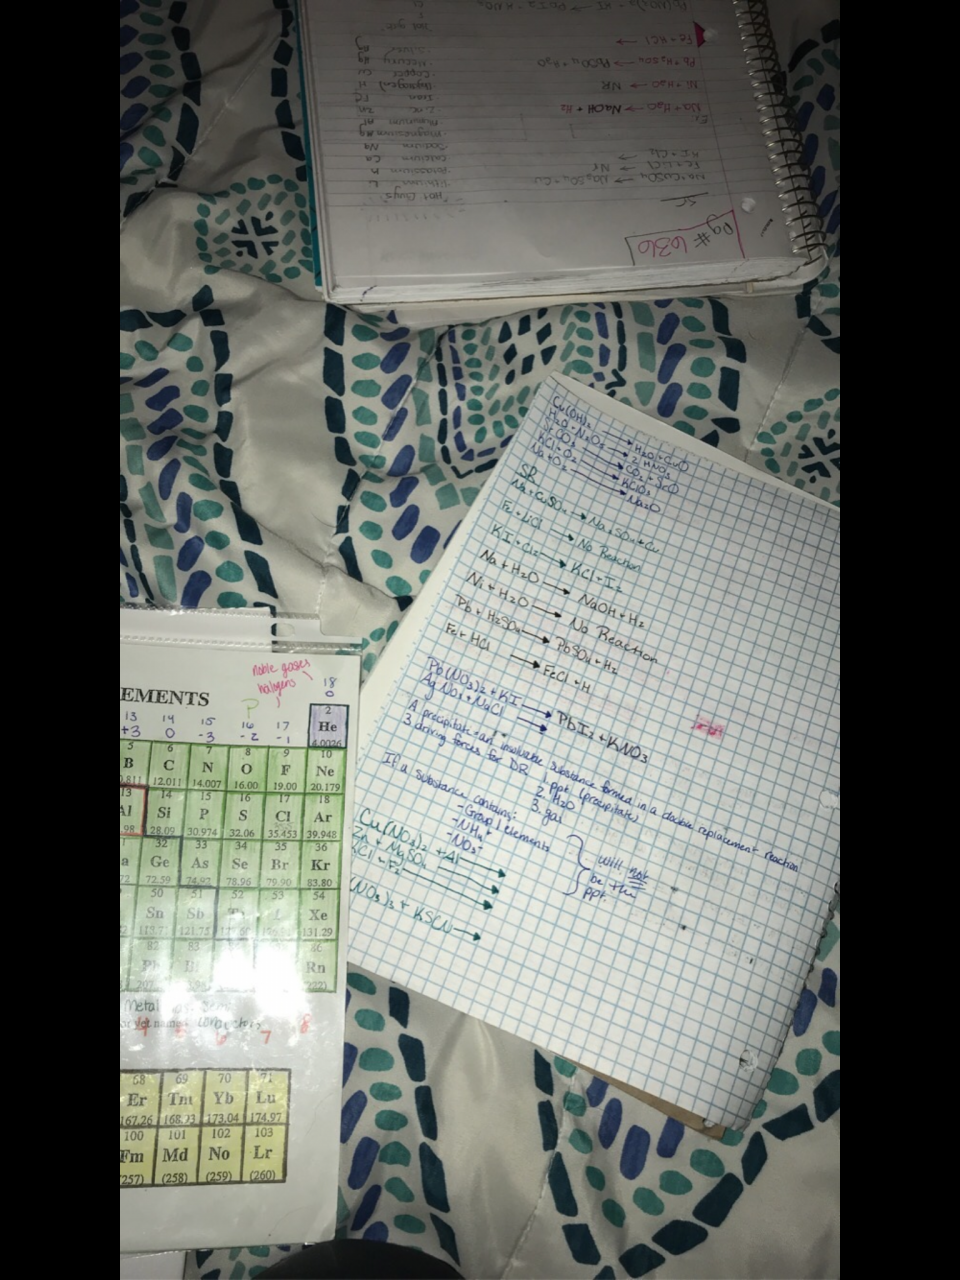 Pg # 636
SR
Na + CuSO4 → Na2SO4 + Cu
Fe + LiCl → NR
KI + Cl2 →
Na + H2O → NaOH + H2
Ni + H2O → NR
Pb + H2SO4 → PbSO4 + H2O
Fe + HCl →
"Hot Guys"
Lithium Li
Potassium K
Calcium Ca
Sodium Na
Magnesium Mg
Aluminum Al
Zinc Zn
Iron Fe
(Hydrogen) H
Copper Cu
Mercury Hg
Silver Ag
Cu(OH)2 → H2O + CuO
H2O + N2O5 → 2 HNO3
SrCO3 → CO2 + SrO
KCl + O2 → KClO3
Na + O2 → Na2O
SR
Na + CuSO4 → Na2SO4 + Cu
Fe + LiCl → No Reaction
KI + Cl2 → KCl + I2
Na + H2O → NaOH + H2
Ni + H2O → No Reaction
Pb + H2SO4 → PbSO4 + H2
Fe + HCl → FeCl + H
Pb(NO3)2 + KI → PbI2 + KNO3
AgNO3 + NaCl →
A precipitate = an insoluable substance formed in a double replacement reaction
3 driving forces for DR
1. ppt (precipitate)
2. H2O
3. gas
If a substance contains:
- Group 1 elements
- NH4+
- NO3-
will not
be the
ppt.
Cu(NO3)2 + Al →
Zn + MgSO4 →
KCl + F2 →
(NO3)3 + KSCN →
noble gases
halogens
EMENTS
18
0
13 14 15 16 17
+3 0 -3 -2 -1
2
He
4.0026
5 6 7 8 9 10
B C N O F Ne
0.811 12.011 14.007 16.00 19.00 20.179
13 14 15 16 17 18
Al Si P S Cl Ar
98 28.09 30.974 32.06 35.453 39.948
32 33 34 35 36
a Ge As Se Br Kr
72 72.59 74.92 78.96 79.90 83.80
50 51 52 53 54
Sn Sb Xe
121.75 131.29
82 83
Pb Bi Rn
Metal
4 5 6 7 8
68 69 70 71
Er Tm Yb Lu
167.26 168.93 173.04 174.97
100 101 102 103
Fm Md No Lr
(257) (258) (259) (260)